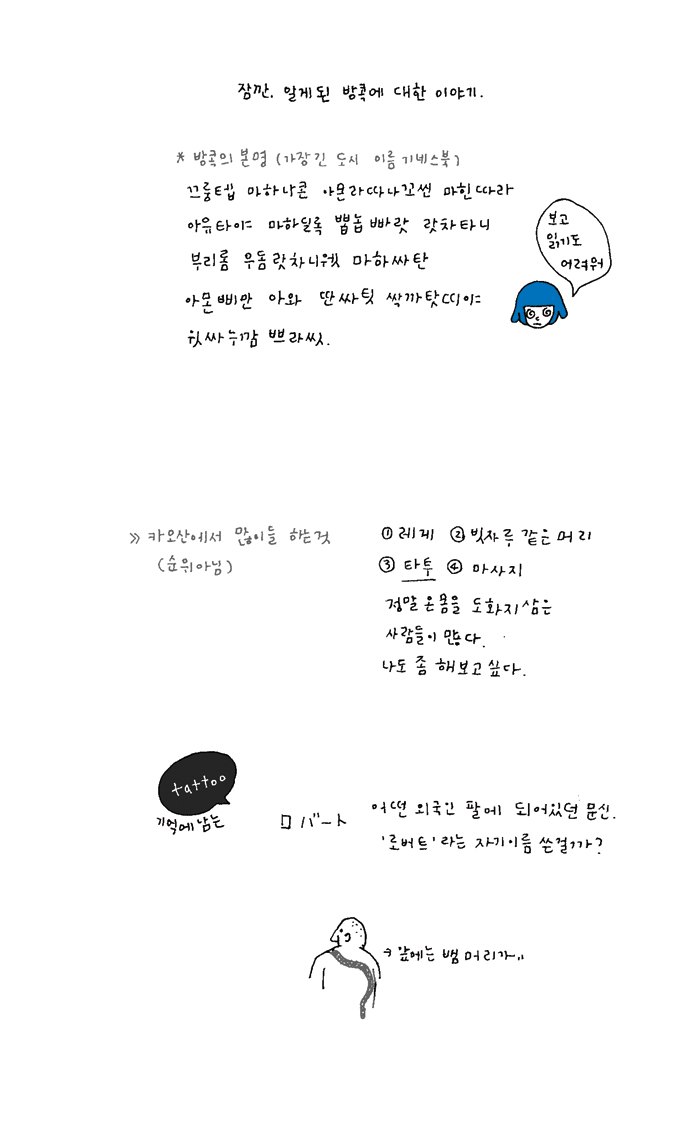 잠깐. 알게된 방콕에 대한 이야기.
* 방콕의 본명 (가장 긴 도시 이름 기네스북)
끄룽텝 마하나콘 아몬라따나꼬씬 마힌따라
아유타이는 마하딜록 뽑놉 빠랏 랏차타니
부리롬 우돔랏차니웻 마하싸탄
아몬삐만 아와 딴싸팃 싹까탓띠이는
윗싸누깜 쁘라씻.
보고
읽기도
어려워
» 카오산에서 많이들 하는것
(순위아님)
① 레게 ② 빗자루 같은 머리
③ 타투 ④ 마사지
정말 온몸을 도화지 삼은
사람들이 많다.
나도 좀 해보고 싶다.
tattoo
기억에 남는
ロバート
어떤 외국인 팔에 되어있던 문신.
'로버트' 라는 자기이름 쓴걸까?
→ 앞에는 뱀 머리가..